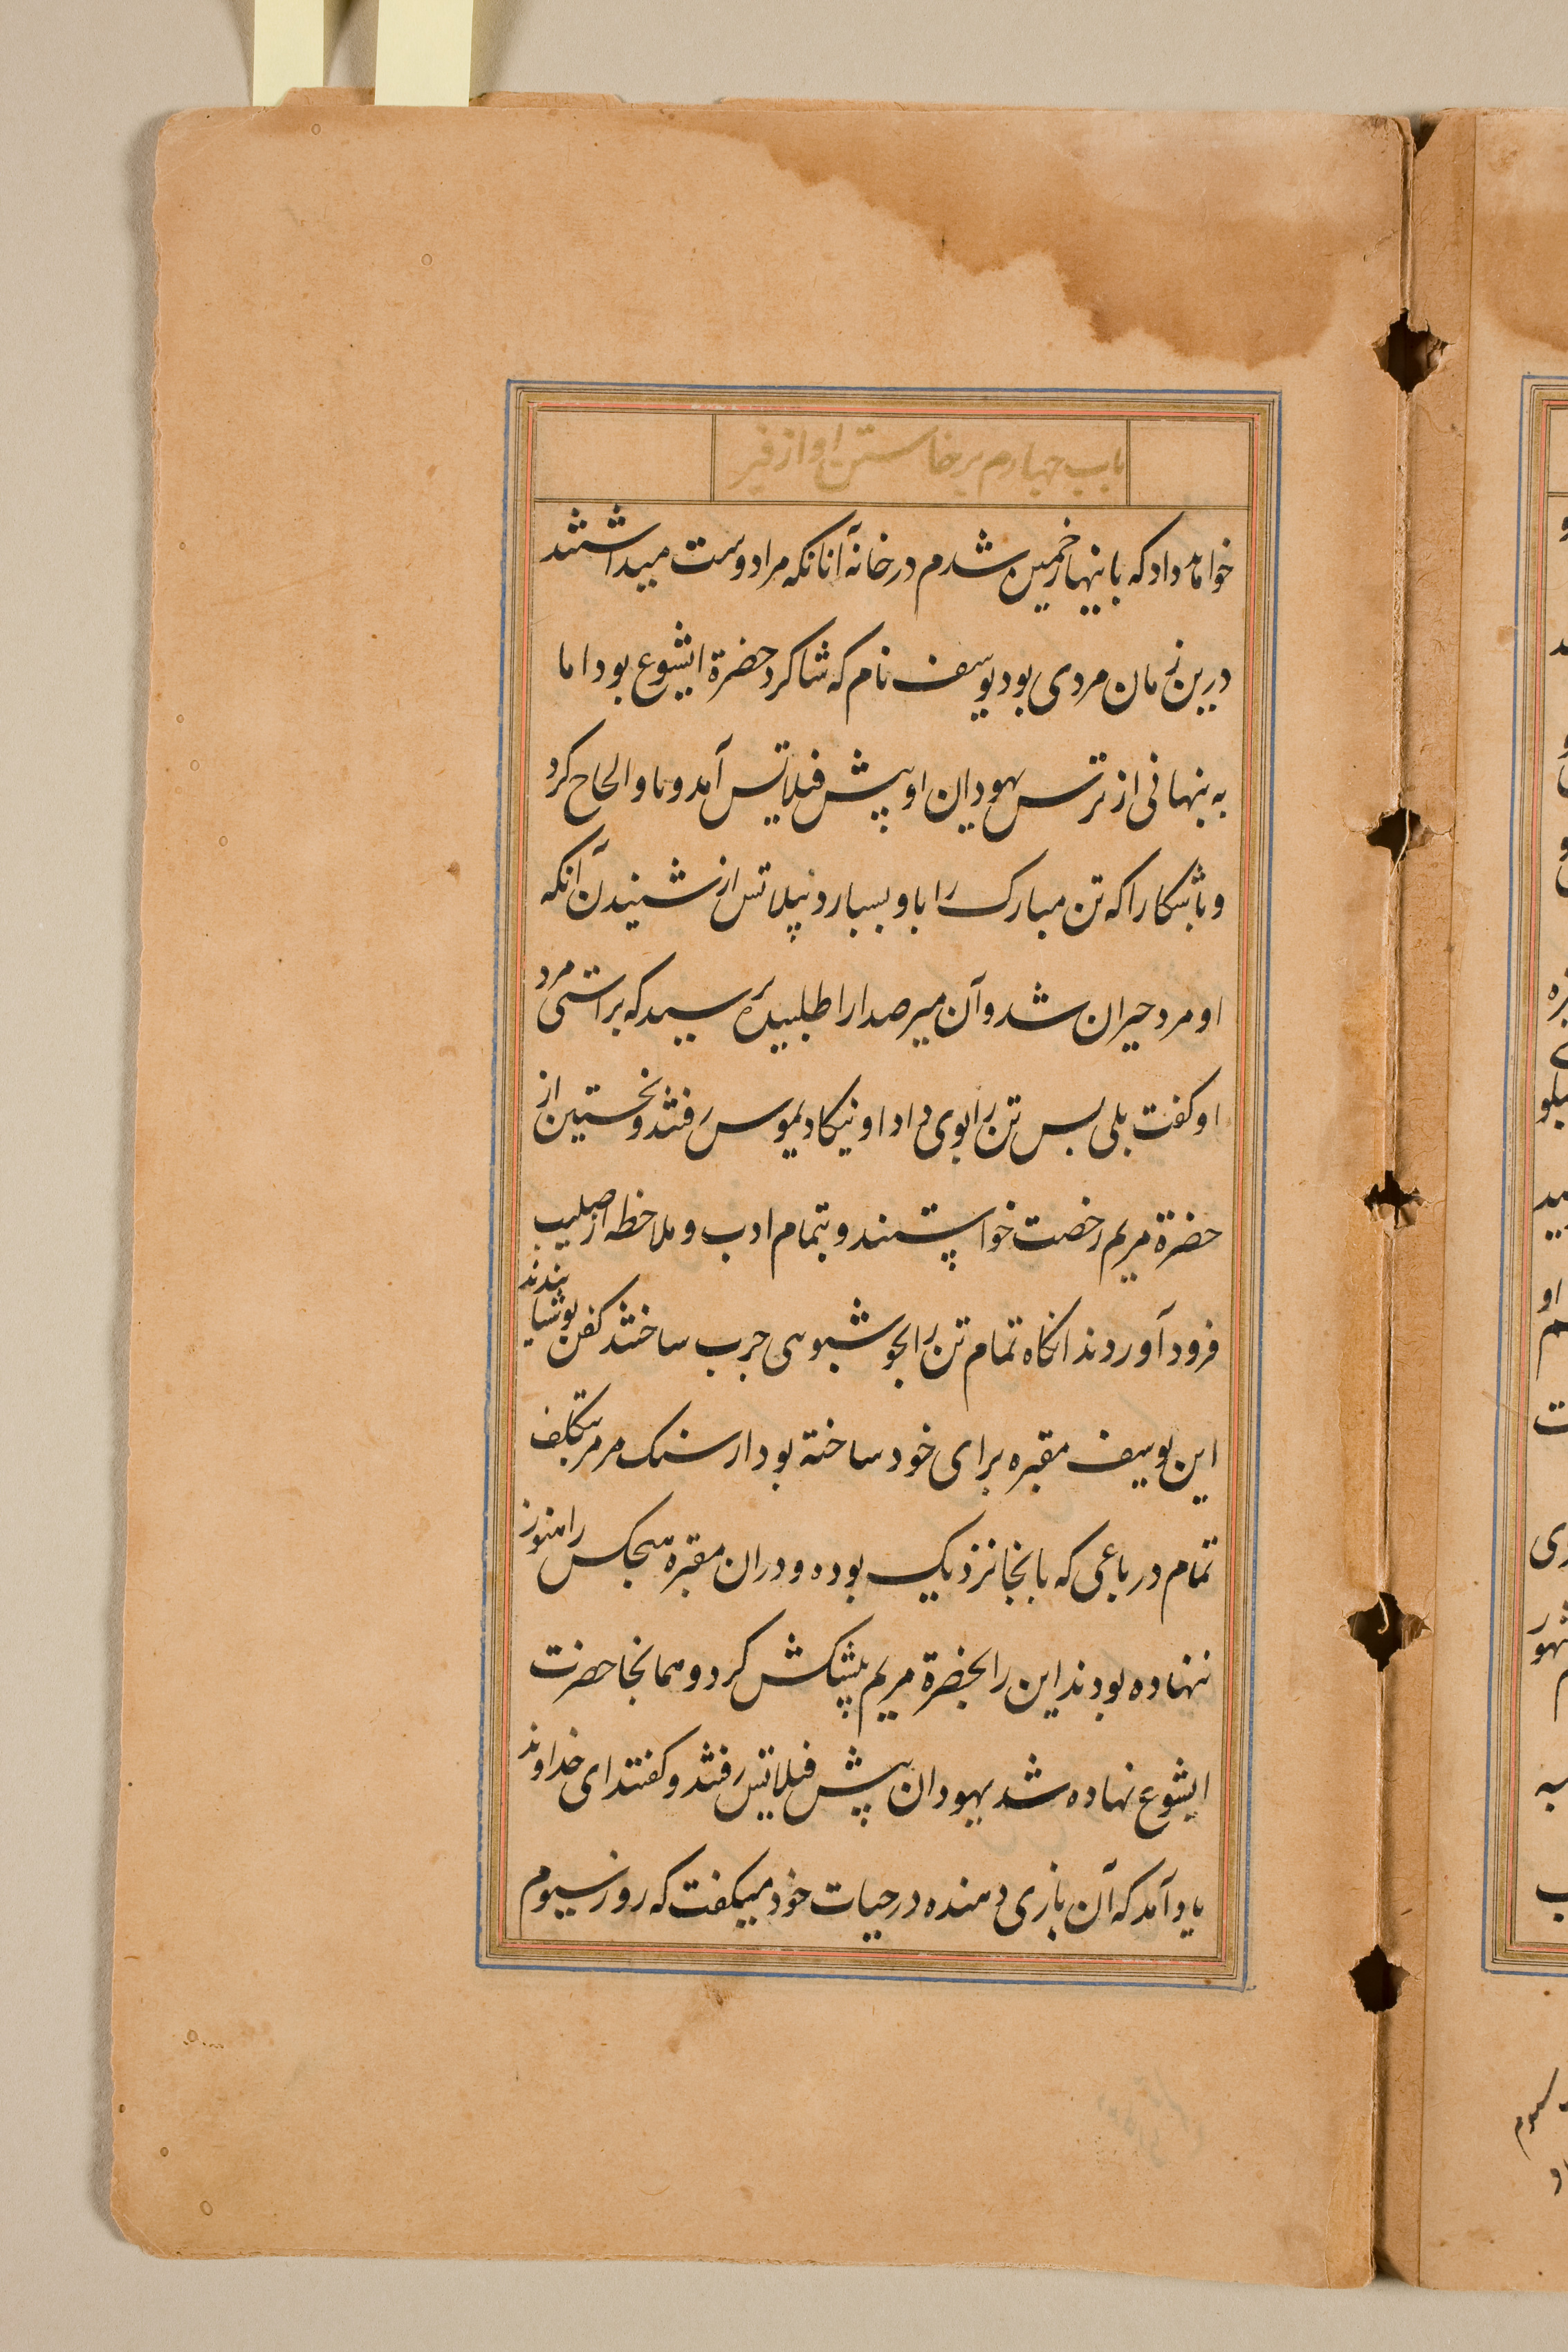 باب چهارم برخاستن او از قبر
خواهد داد که باینها زخمین شدم در خانهٔ آنانکه مرا دوست میداشتند
درین زمان مردی بود یوسف نام که شاکرد حضرة ایشوع بود اما
به پنهانی از ترس یهودان او پیش فیلاتس آمد و با و الحاح کرد
و باشکارا که تن مبارک را باو بسپارد پیلاتس از شنیدن آنکه
او مرد حیران شد و آن میر صدار را طلبیده پرسید که براستی مرد
او کفت بلی پس تن را بوی داد او نیکادیموس رفتند و نخستین از
حضرة مریم رخصت خواستند و بتمام ادب و ملاحظه از صلیب
فرود آوردند انکاه تمام تن را بخوشبوی چرب ساختند کفن پوشانیدند
این یوسف مقبره برای خود ساخته بود از سنک مرمر بتکلف
تمام در باغی که بانجا نزدیک بوده و دران مقبره هیچکس را هنوز
ننهاده بودند این را بحضرة مریم پیشکش کرد و همانجا حضرت
ایشوع نهاده شد یهودان پیش فیلاتس رفتند و کفتند ای خداوند
یاد آمد که آن بازی دهنده در حیات خود میکفت که روز سیوم